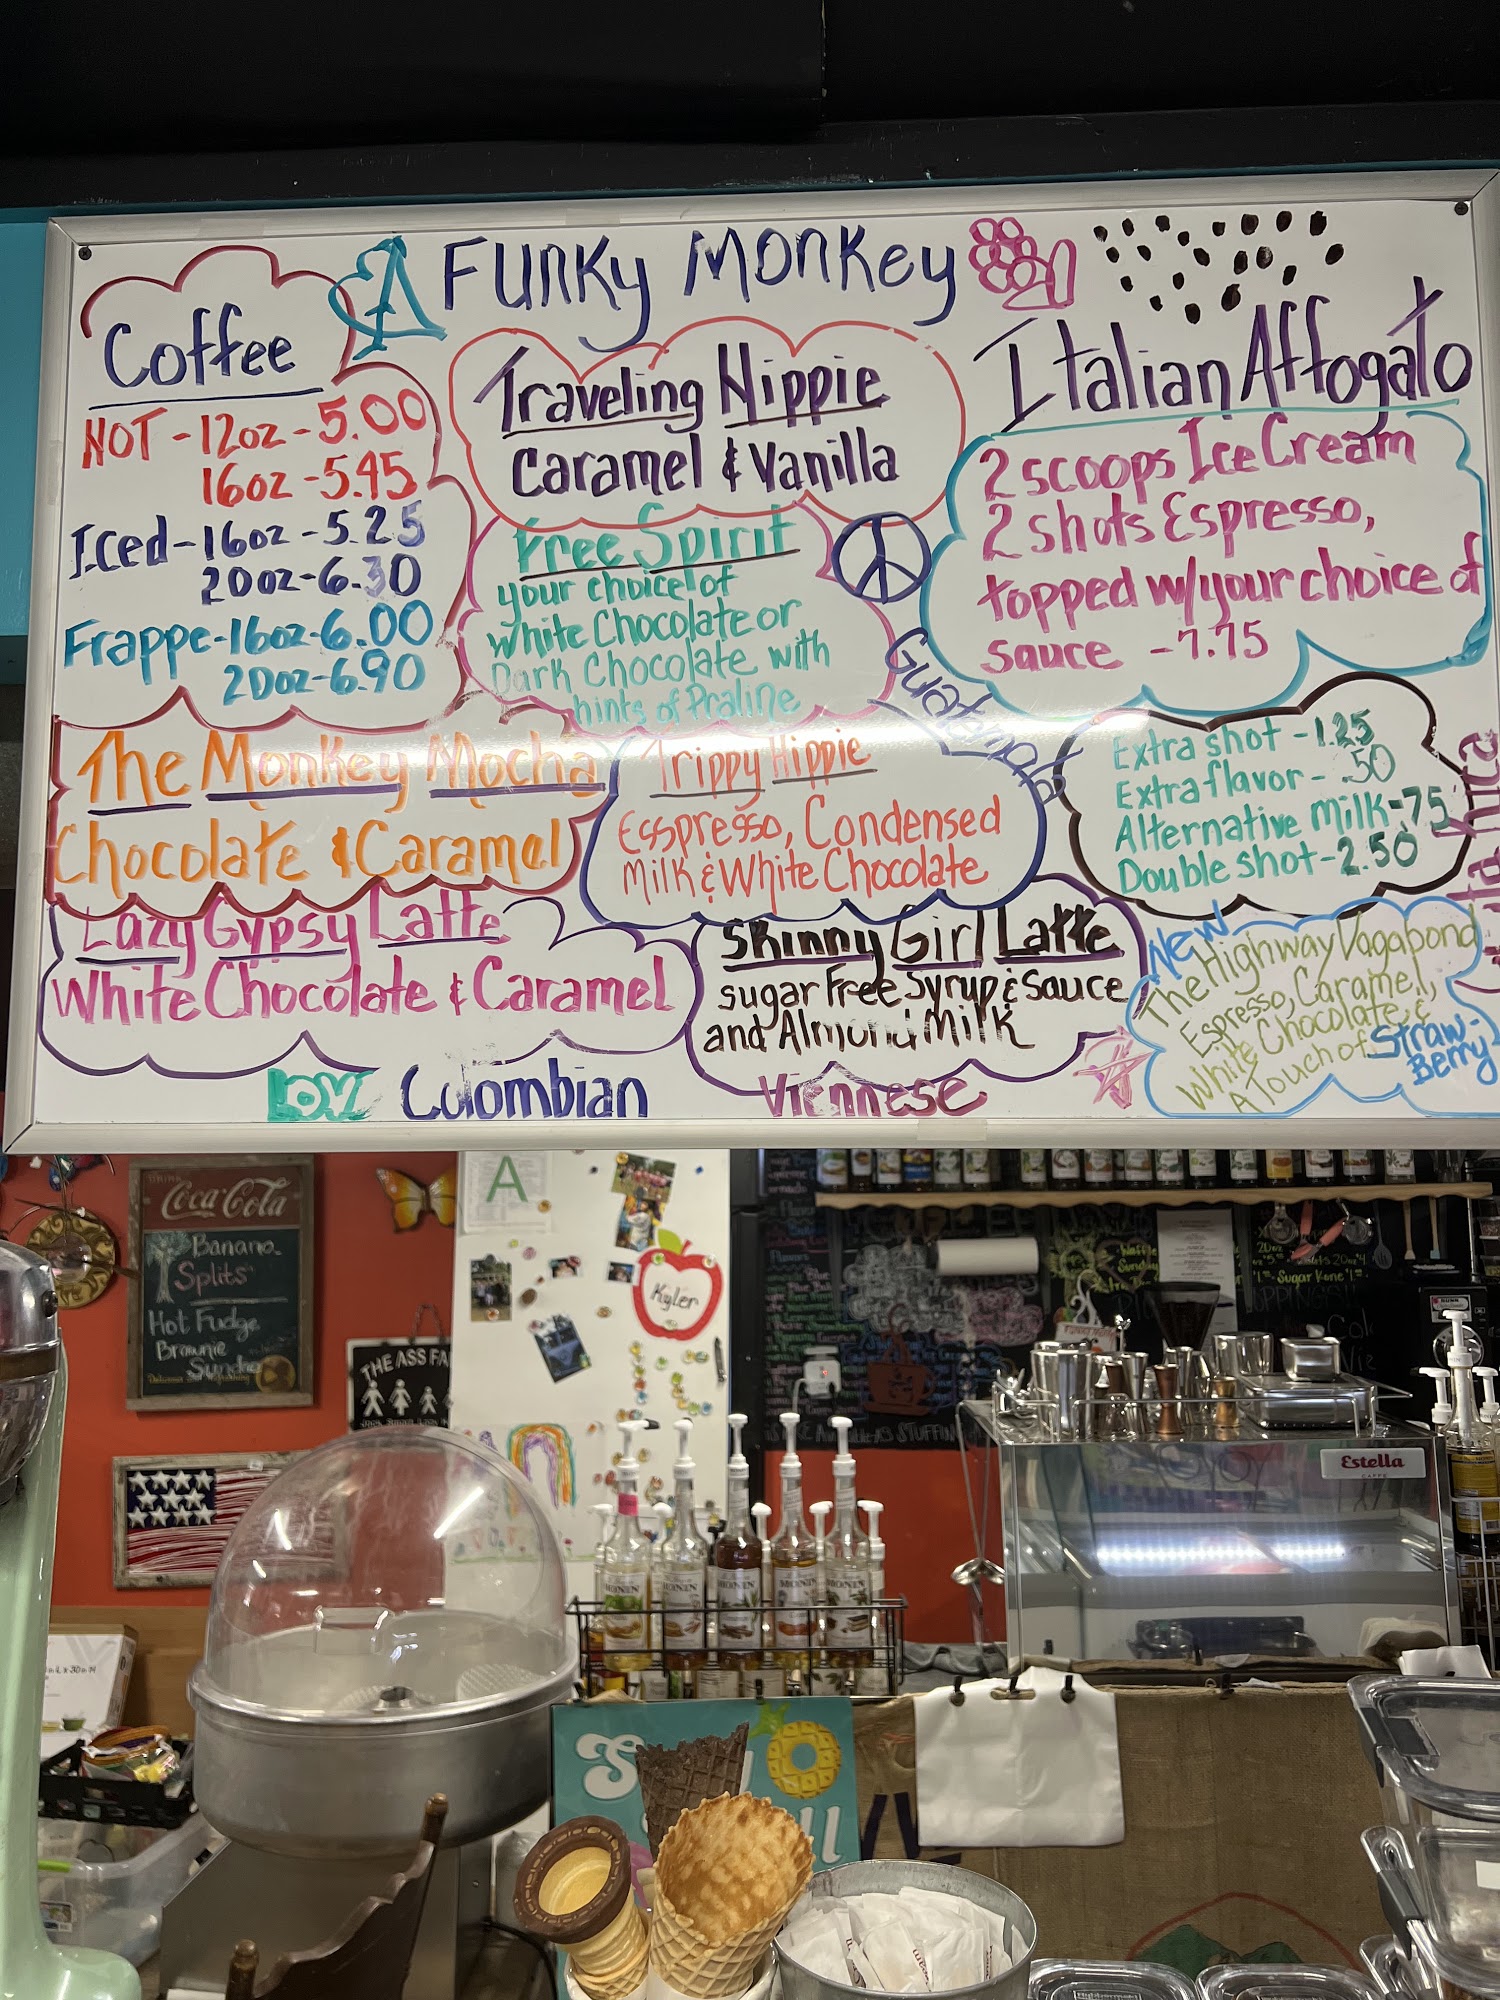 A FUNKY MONKEY
Coffee
HOT - 12oz - 5.00
16oz - 5.45
Iced - 16oz - 5.25
20oz - 6.30
Frappe - 16oz - 6.00
20oz - 6.90
Traveling Hippie
Caramel & Vanilla
Free Spirit
your choice of
White Chocolate or
Dark Chocolate with
hints of Praline
Italian Affogato
2 scoops Ice Cream
2 shots Espresso,
topped w/your choice of
sauce - 7.75
Guatemala
The Monkey Mocha
Chocolate & Caramel
Trippy Hippie
Esspresso, Condensed
Milk & White Chocolate
Extra shot - 1.25
Extra flavor - .50
Alternative milk - .75
Double shot - 2.50
Lazy Gypsy Latte
White Chocolate & Caramel
Skinny Girl Latte
sugar Free Syrup & Sauce
and Almond Milk
New
The Highway Vagabond
Espresso, Caramel,
White Chocolate, &
A Touch of Straw-
Berry
LOV
Colombian
Viennese
DRINK
Coca-Cola
Banana
Splits
Hot Fudge
Brownie
Sunda
A
Kyler
THE ASS FA
Sugar Kone
STUFFIN
Estella
CAFFE
MONIN
MONIN
MONIN
MONIN
MONIN